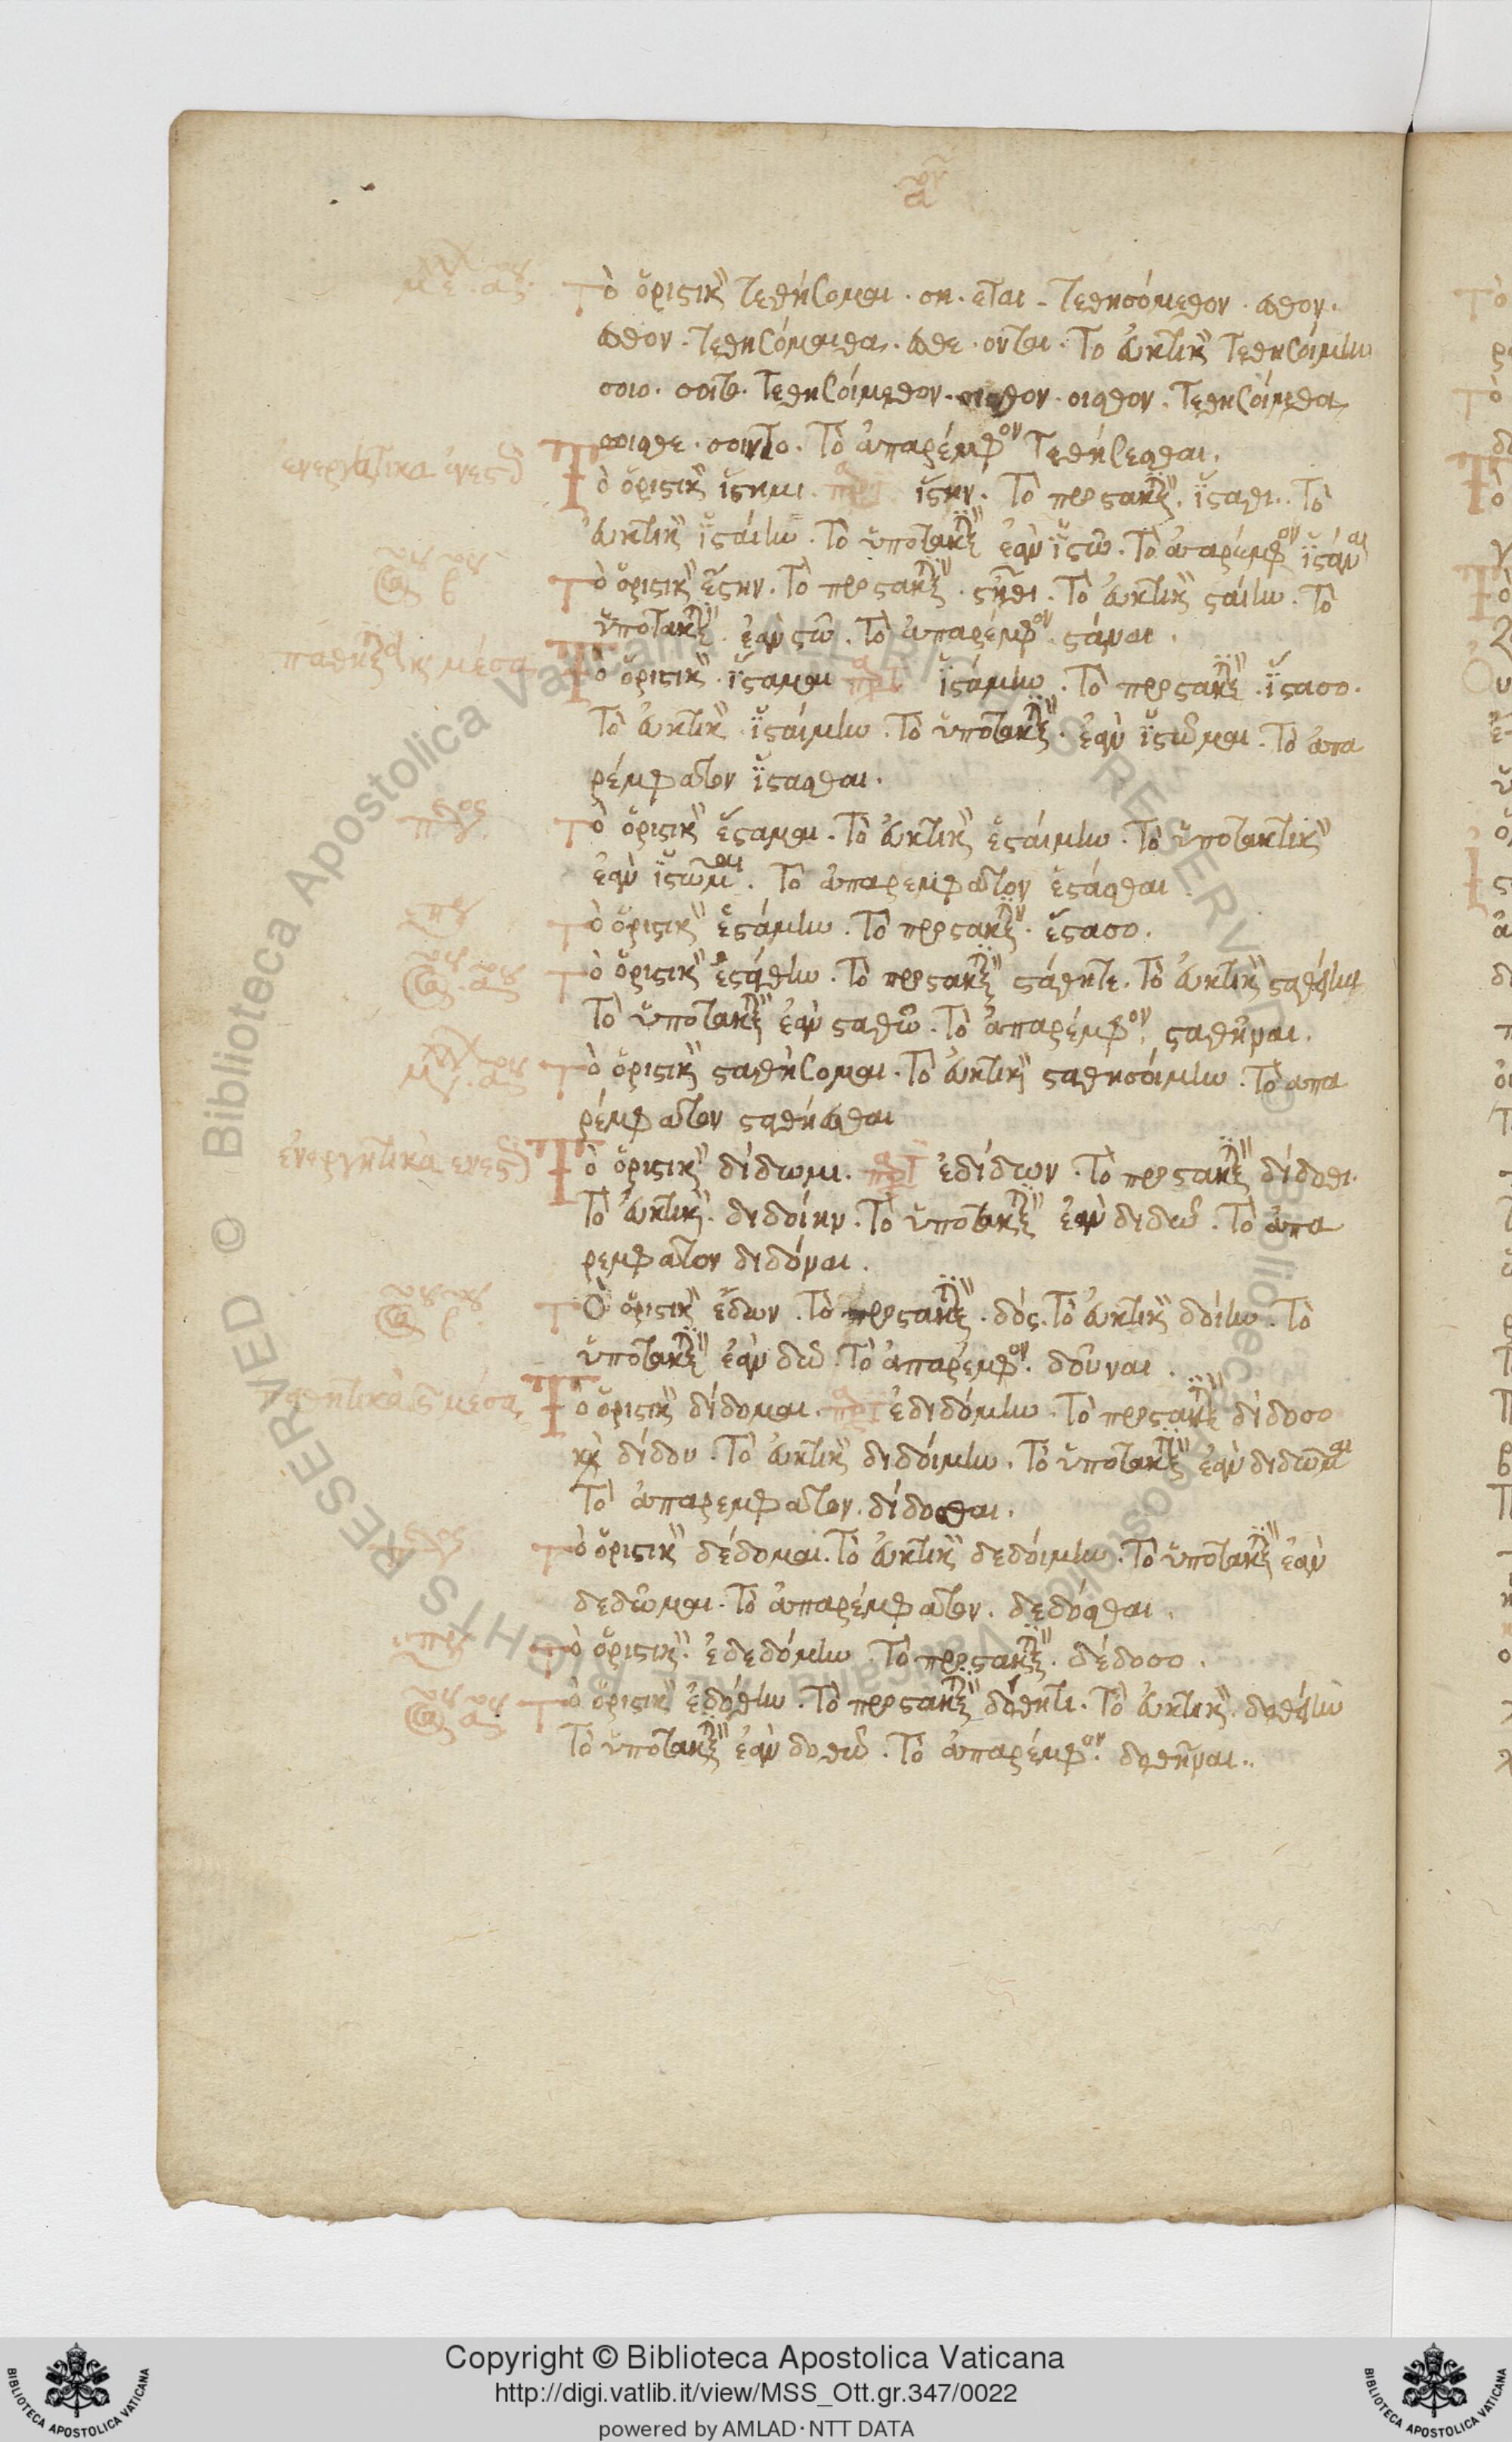 Τὸ ὁριστικ τεθήσομαι. ση. εται. τεθησόμεθον. σθον.
σθον. τεθησόμεθα. σθε. ονται. Τὸ ἐυκτικ τεθησοίμην
σοιο. σοιτο. τεθησοίμεθον. οισθον. οισθον. τεθησοίμεθα
σοισθε. σοιντο. Τὸ ἀπαρέμφον τεθήσεσθαι.
ἐνεργητικὰ ἐνεστ Τὸ ὁριστικ ἵστημι. πρτ ἵστην. Τὸ προστακτικ. ἵσταθι. Τὸ
ἐυκτικ ἱσταίην. Τὸ ὑποτακτικ ἐὰν ἱστῶ. Τὸ ἀπαρέμφον ἱστάναι
Τὸ ὁριστικ ἔστην. Τὸ προστακτικ. στῆθι. Τὸ ἐυκτικ σταίην. Τὸ
ὑποτακτικ. ἐὰν στῶ. Τὸ ἀπαρέμφον. στάναι.
παθητικὰ κ μέσα Τὸ ὁριστικ. ἵσταμαι πρτ ἱστάμην. Τὸ προστακτικ. ἵστασο.
Τὸ ἐυκτικ. ἱσταίμην. Τὸ ὑποτακτικ. ἐὰν ἱστῶμαι. Τὸ ἀπα
ρέμφατον ἵστασθαι.
Τὸ ὁριστικ ἕσταμαι. Τὸ ἐυκτικ ἑσταίμην. Τὸ ὑποτακτικ
ἐὰν ἱστῶμαι. Τὸ ἀπαρεμφατον ἑστάσθαι
Τὸ ὁριστικ ἑστάμην. Τὸ προστακτικ. ἕστασο.
Τὸ ὁριστικ ἐστάθην. Τὸ προστακτικ στάθητι. Τὸ ἐυκτικ σταθείην
Τὸ ὑποτακτικ ἐὰν σταθῶ. Τὸ ἀπαρέμφον. σταθῆναι.
Τὸ ὁριστικ σταθήσομαι. Τὸ ἐυκτικ σταθησοίμην. Τὸ ἀπα
ρέμφατον σταθήσθαι
ἐνεργητικὰ ἐνεστ Τὸ ὁριστικ δίδωμι. πρτ ἐδίδων. Τὸ προστακτικ δίδοθι.
Τὸ ἐυκτικ. διδοίην. Τὸ ὑποτακτικ ἐὰν διδῶ. Τὸ ἀπα
ρεμφατον διδόναι.
Τὸ ὁριστικ ἔδων. Τὸ προστακτικ. δός. Τὸ ἐυκτικ δοίην. Τὸ
ὑποτακτικ ἐὰν δῶ. Τὸ ἀπαρέμφον. δοῦναι.
παθητικὰ κ μέσα Τὸ ὁριστικ δίδομαι. πρτ ἐδιδόμην. Τὸ προστακτικ δίδοσο
κὶ δίδου. Τὸ ἐυκτικ διδοίμην. Τὸ ὑποτακτικ ἐὰν διδῶμαι
Τὸ ἀπαρεμφατον. δίδοσθαι.
Τὸ ὁριστικ δέδομαι. Τὸ ἐυκτικ δεδοίμην. Τὸ ὑποτακτικ ἐὰν
δεδῶμαι. Τὸ ἀπαρέμφατον. δεδόσθαι.
Τὸ ὁριστικ. ἐδεδόμην. Τὸ προστακτικ. δέδοσο.
Τὸ ὁριστικ ἐδόθην. Τὸ προστακτικ δόθητι. Τὸ ἐυκτικ. δοθείην
Τὸ ὑποτακτικ ἐὰν δοθῶ. Τὸ ἀπαρέμφον. δοθῆναι.
Copyright © Biblioteca Apostolica Vaticana
http://digi.vatlib.it/view/MSS_Ott.gr.347/0022
powered by AMLAD·NTT DATA